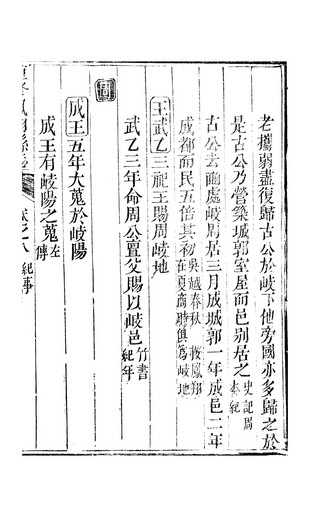 老攜弱盡復歸古公於岐下他旁國亦多歸之於
是古公乃營築城郭室屋而邑别居之史記周本紀
古公去豳處岐周居三月成城郭一年成邑二年
成都而民五倍其初吳越春秋 按鳳翔在夏商時俱爲岐地
王武乙三祀王賜周岐地
武乙三年命周公亶父賜以岐邑竹書紀年
周
成王五年大蒐於岐陽
成王有岐陽之蒐左傳
卷之八 紀事